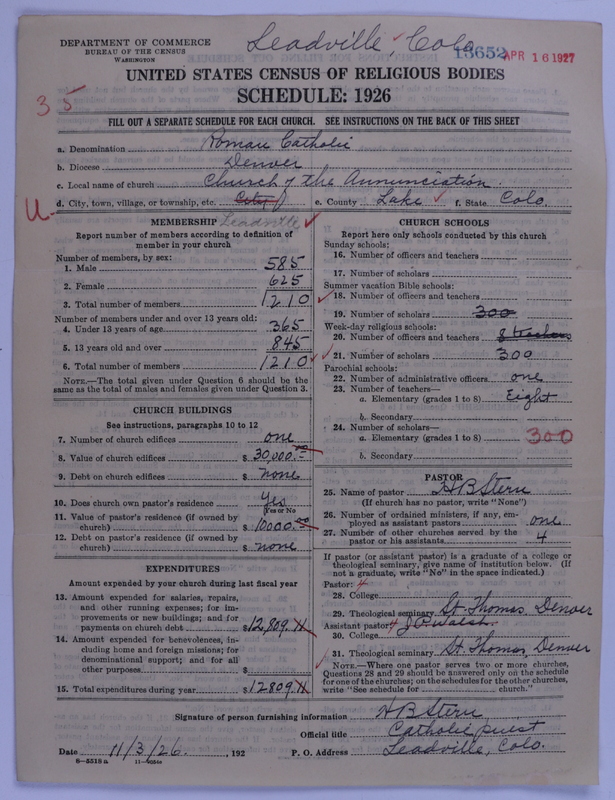 DEPARTMENT OF COMMERCE
BUREAU OF THE CENSUS
WASHINGTON
Leadville, Colo
13652 APR 16 1927
UNITED STATES CENSUS OF RELIGIOUS BODIES
SCHEDULE: 1926
35
FILL OUT A SEPARATE SCHEDULE FOR EACH CHURCH. SEE INSTRUCTIONS ON THE BACK OF THIS SHEET
a. Denomination Roman Catholic
b. Diocese Denver
c. Local name of church Church of the Annunciation.
U- d. City, town, village, or township, etc. City e. County Lake f. State Colo.
Leadville
MEMBERSHIP
Report number of members according to definition of
member in your church
Number of members, by sex:
1. Male 585
2. Female 625
3. Total number of members 1210
Number of members under and over 13 years old:
4. Under 13 years of age 365
5. 13 years old and over 845
6. Total number of members 1210
NOTE.—The total given under Question 6 should be
same as the total of males and females given under Question 3.
CHURCH BUILDINGS
See instructions, paragraphs 10 to 12
7. Number of church edifices one
8. Value of church edifices $30,000.00
9. Debt on church edifices $ none
10. Does church own pastor's residence Yes
(Yes or No)
11. Value of pastor's residence (if owned by
church) $10000.00
12. Debt on pastor's residence (if owned by
church) $ none
EXPENDITURES
Amount expended by your church during last fiscal year
13. Amount expended for salaries, repairs,
and other running expenses; for im-
provements or new buildings; and for
payments on church debt $12,809.11
14. Amount expended for benevolences, in-
cluding home and foreign missions; for
denominational support; and for all
other purposes $
15. Total expenditures during year $12809.11
CHURCH SCHOOLS
Report here only schools conducted by this church
Sunday schools:
16. Number of officers and teachers
17. Number of scholars
Summer vacation Bible schools:
18. Number of officers and teachers
19. Number of scholars 300
Week-day religious schools:
20. Number of officers and teachers 8 teachers
21. Number of scholars 300
Parochial schools:
22. Number of administrative officers one
23. Number of teachers—
a. Elementary (grades 1 to 8) Eight
b. Secondary
24. Number of scholars—
a. Elementary (grades 1 to 8) 300
b. Secondary
PASTOR
25. Name of pastor H B Stern
(If church has no pastor, write "None")
26. Number of ordained ministers, if any, em-
ployed as assistant pastors one
27. Number of other churches served by the
pastor or his assistants 4
If pastor (or assistant pastor) is a graduate of a college or
theological seminary, give name of institution below. (If
not a graduate, write "No" in the space indicated.)
Pastor:
28. College
29. Theological seminary St. Thomas, Denver
Assistant pastor: J P Walsh.
30. College
31. Theological seminary St. Thomas, Denver
NOTE.—Where one pastor serves two or more churches,
Questions 28 and 29 should be answered only on the schedule
for one of the churches; on the schedules for the other churches,
write "See schedule for church."
Signature of person furnishing information H B Stern
Official title Catholic priest
Date 11/3/26., 192 P. O. Address Leadville, Colo.
8—5518 a